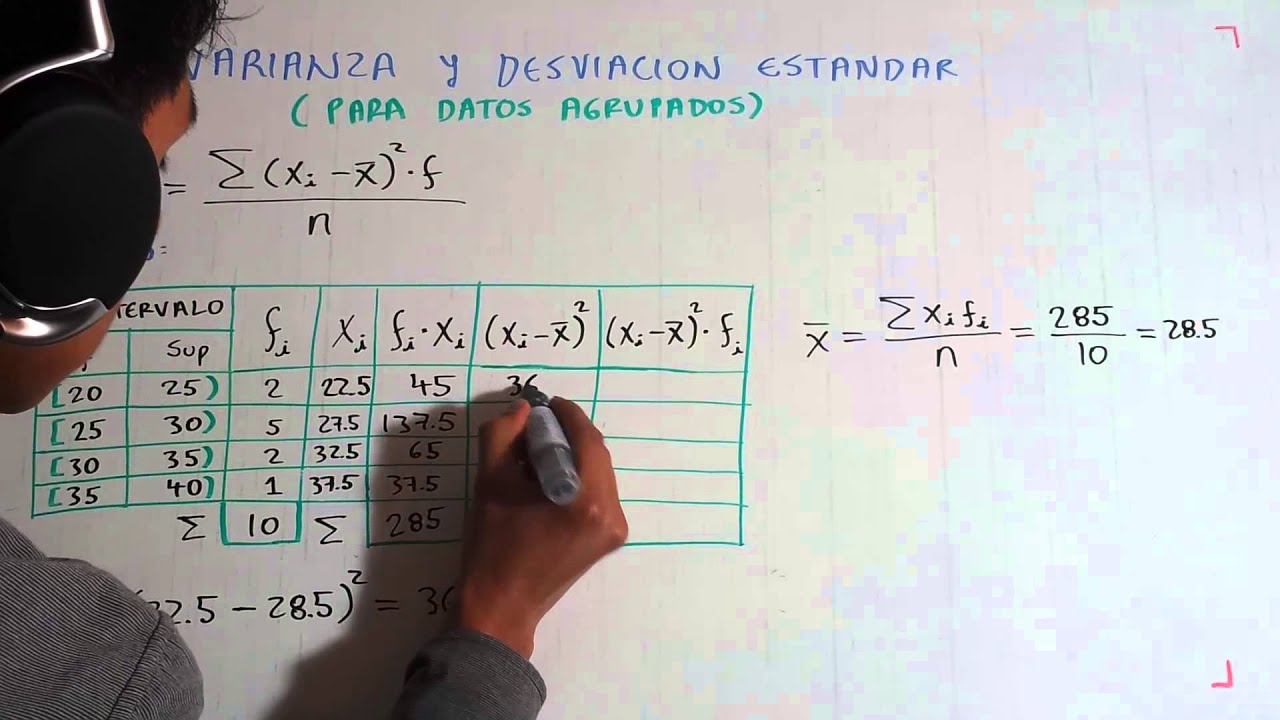 VARIANZA Y DESVIACION ESTANDAR
( PARA DATOS AGRUPADOS)
= Σ(xᵢ - x̄)² · f / n
fᵢ Xᵢ fᵢ · Xᵢ (xᵢ - x̄)² (xᵢ - x̄)² · fᵢ
Sup
[20 25) 2 22.5 45 36
[25 30) 5 27.5 137.5
[30 35) 2 32.5 65
[35 40) 1 37.5 37.5
Σ 10 Σ 285
22.5 - 28.5)² = 36
x̄ = Σ xᵢ fᵢ / n = 285 / 10 = 28.5